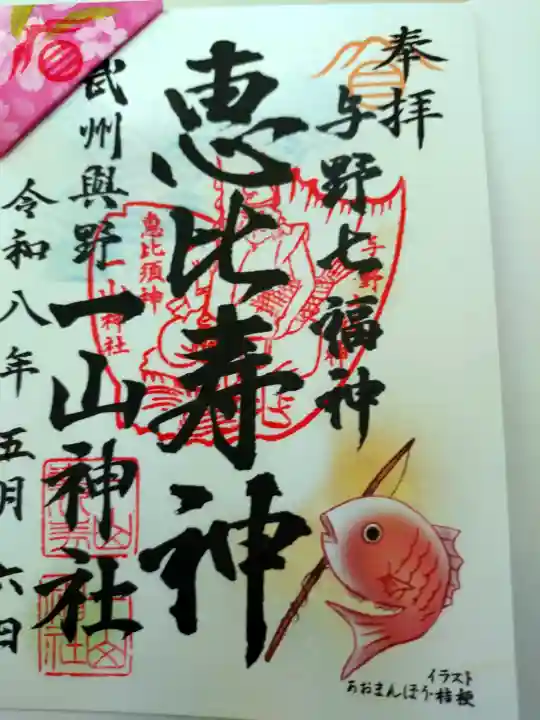 奉拝
与野七福神
恵比寿神
武州與野
一山神社
令和八年五月六日
恵比須神
一山神社
与野
イラスト
あおまんぼう・桔梗